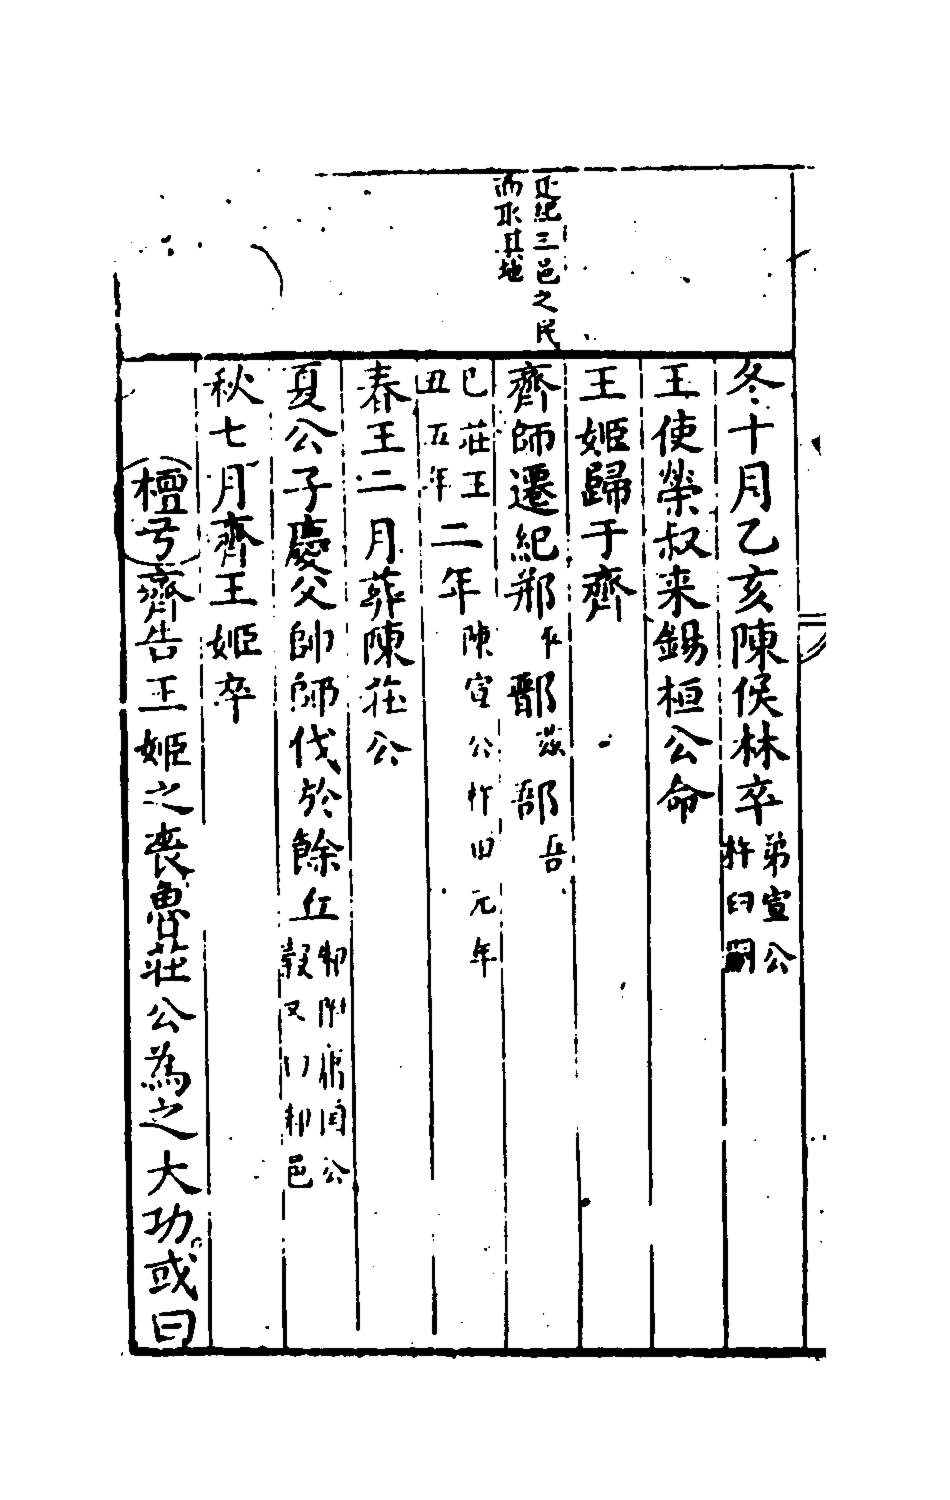 徙紀三邑之民
而取其地
冬十月乙亥陳侯林卒弟宣公杵臼嗣
王使榮叔来錫桓公命
王姬歸于齊
齊師遷紀郱平鄑兹郚吾
巳莊王丑五年二年陳宣公杵臼元年
春王二月葬陳莊公
夏公子慶父帥師伐於餘丘邾附庸国公穀又以邾邑
秋七月齊王姬卒
檀弓齊告王姬之喪魯莊公為之大功或曰